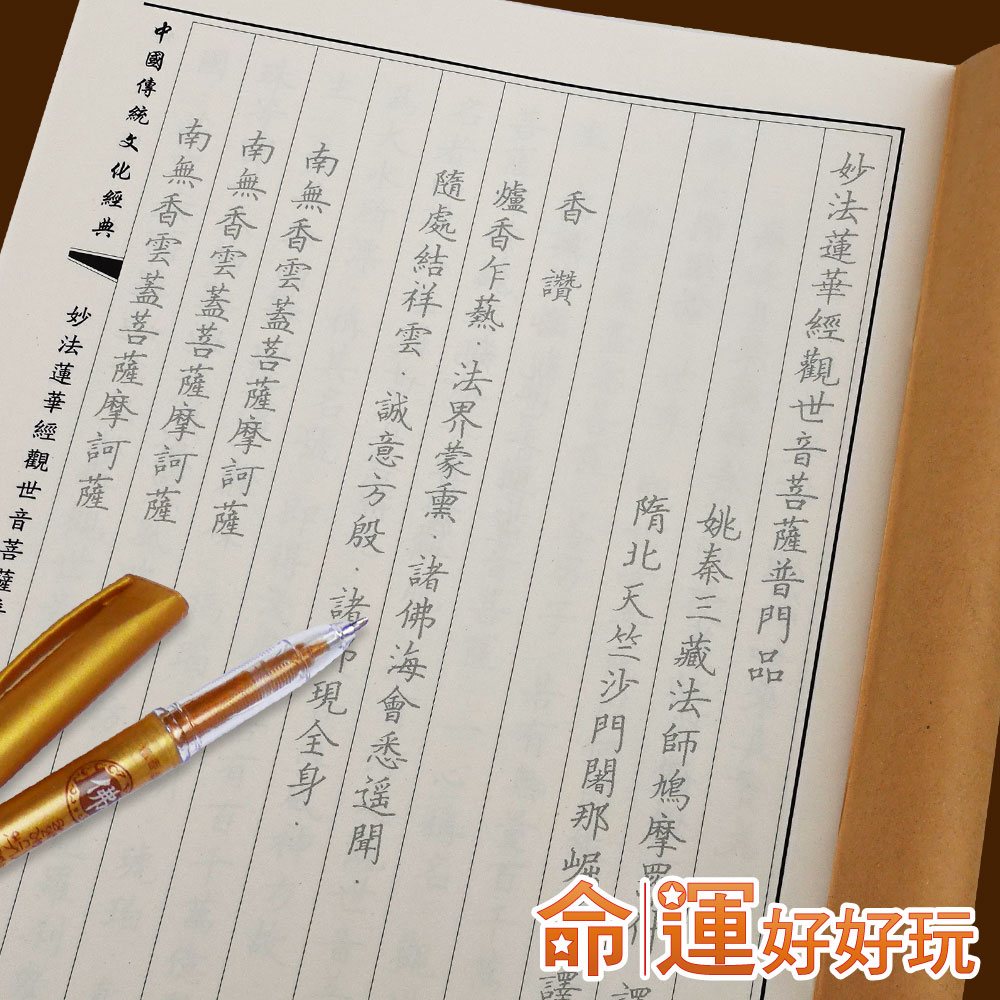 妙法蓮華經觀世音菩薩普門品
姚秦三藏法師鳩摩羅什 譯
隋北天竺沙門闍那崛 譯
香 讚
爐香乍爇．法界蒙熏．諸佛海會悉遥聞．
隨處結祥雲．誠意方殷．諸 現全身．
南無香雲蓋菩薩摩訶薩
南無香雲蓋菩薩摩訶薩
南無香雲蓋菩薩摩訶薩
中國傳統文化經典
妙法蓮華經觀世音菩薩
命運好好玩